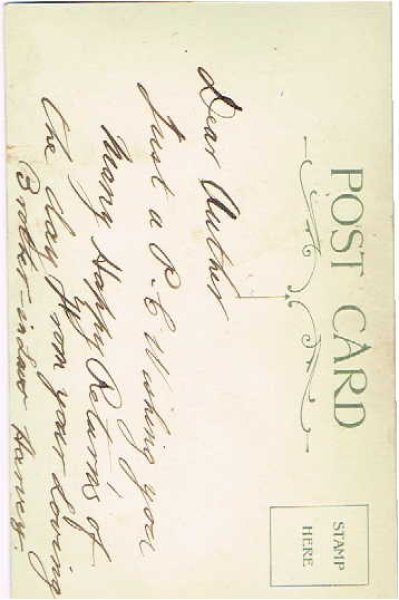 POST CARD
STAMP
HERE
Dear Auther
Just a P.C Wishing you
Many Happy Returns of
the day From your Loving
Brother-in Law Harvey.